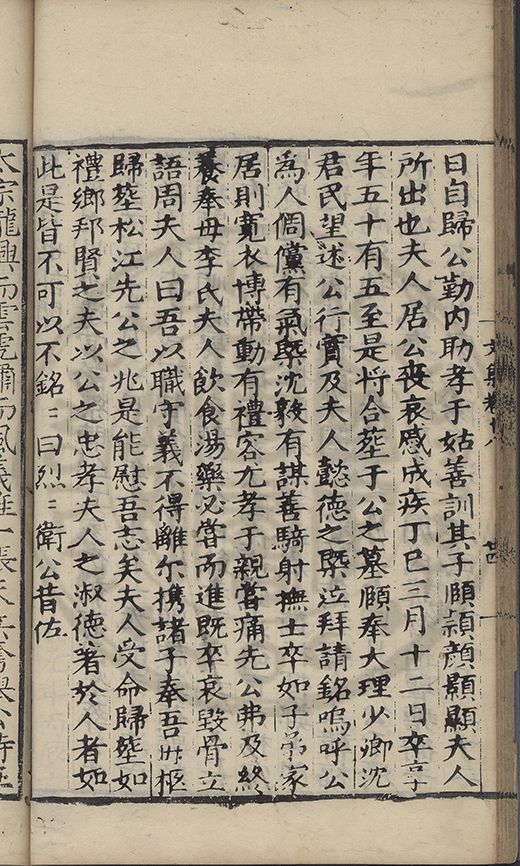 文集卷廿八
廿四
日自歸公勤内助孝于姑善訓其子頤頴顔顥顯夫人
所出也夫人居公喪哀慼成疾丁巳三月十二日卒享
年五十有五至是将合塟于公之墓頤奉大理少卿沈
君民望述公行實及夫人懿德之槩泣拜請銘嗚呼公
為人倜儻有氣槩沈毅有謀善騎射撫士卒如子弟家
居則寛衣博帶動有禮容尤孝于親嘗痛先公弗及終
養奉母李氏夫人飲食湯藥必嘗而進既卒哀毀骨立
語周夫人曰吾以職守義不得離尔擕諸子奉吾母柩
歸塟松江先公之兆是能慰吾志矣夫人受命歸塟如
禮鄉邦賢之夫以公之忠孝夫人之淑德著於人者如
此是皆不可以不銘〻曰烈〻衛公昔佐
太宗龍興而雲虎嘯而風義進一張